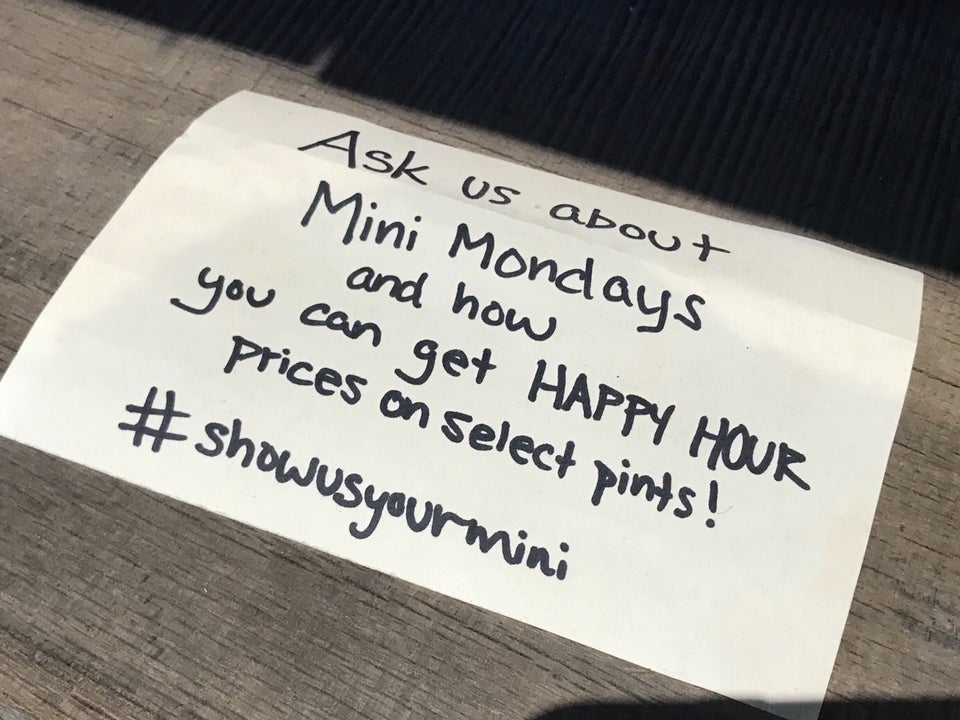 Ask us about
Mini Mondays
and how
you can get HAPPY HOUR
prices on select pints!
#showusyourmini